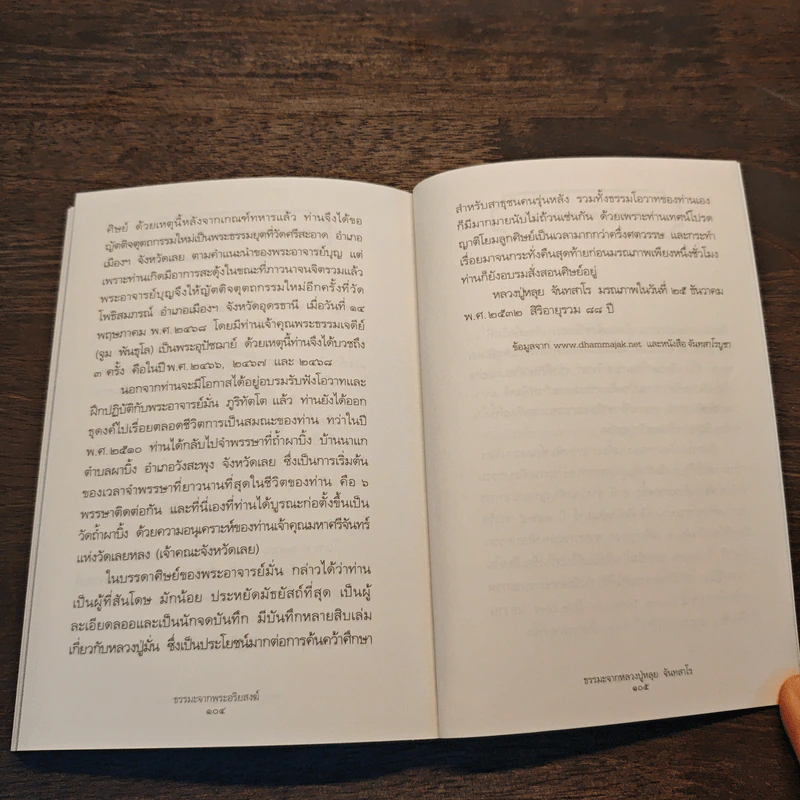 ศิษย์ ด้วยเหตุนี้หลังจากเกณฑ์ทหารแล้ว ท่านจึงได้ขอ
ญัตติจตุตถกรรมใหม่เป็นพระธรรมยุตที่วัดศรีสะอาด อำเภอ
เมืองฯ จังหวัดเลย ตามคำแนะนำของพระอาจารย์บุญ แต่
เพราะท่านเกิดมีอาการสะดุ้งในขณะที่ภาวนาจนจิตรวมแล้ว
พระอาจารย์บุญจึงให้ญัตติจตุตถกรรมใหม่อีกครั้งที่วัด
โพธิสมภรณ์ อำเภอเมืองฯ จังหวัดอุดรธานี เมื่อวันที่ ๑๔
พฤษภาคม พ.ศ. ๒๔๖๘ โดยมีท่านเจ้าคุณพระธรรมเจดีย์
(จูม พันธุโล) เป็นพระอุปัชฌาย์ ด้วยเหตุนี้ท่านจึงได้บวชถึง
๓ ครั้ง คือในปี พ.ศ. ๒๔๖๖, ๒๔๖๗ และ ๒๔๖๘
นอกจากท่านจะมีโอกาสได้อยู่อบรมรับฟังโอวาทและ
ฝึกปฏิบัติกับพระอาจารย์มั่น ภูริทัตโต แล้ว ท่านยังได้ออก
ธุดงค์ไปเรื่อยตลอดชีวิตการเป็นสมณะของท่าน ทว่าในปี
พ.ศ. ๒๕๑๐ ท่านได้กลับไปจำพรรษาที่ถ้ำผาบิ้ง บ้านนาแก
ตำบลผาบิ้ง อำเภอวังสะพุง จังหวัดเลย ซึ่งเป็นการเริ่มต้น
ของเวลาจำพรรษาที่ยาวนานที่สุดในชีวิตของท่าน คือ ๖
พรรษาติดต่อกัน และที่นี่เองที่ท่านได้บูรณะก่อตั้งขึ้นเป็น
วัดถ้ำผาบิ้ง ด้วยความอนุเคราะห์ของท่านเจ้าคุณมหาศรีจันทร์
แห่งวัดเลยหลง (เจ้าคณะจังหวัดเลย)
ในบรรดาศิษย์ของพระอาจารย์มั่น กล่าวได้ว่าท่าน
เป็นผู้ที่สันโดษ มักน้อย ประหยัดมัธยัสถ์ที่สุด เป็นผู้
ละเอียดลออและเป็นนักจดบันทึก มีบันทึกหลายสิบเล่ม
เกี่ยวกับหลวงปู่มั่น ซึ่งเป็นประโยชน์มากต่อการค้นคว้าศึกษา
ธรรมะจากพระอริยสงฆ์
๑๐๔
สำหรับสาธุชนคนรุ่นหลัง รวมทั้งธรรมโอวาทของท่านเอง
ก็มีมากมายนับไม่ถ้วนเช่นกัน ด้วยเพราะท่านเทศน์โปรด
ญาติโยมลูกศิษย์เป็นเวลามากกว่าครึ่งศตวรรษ และกระทำ
เรื่อยมาจนกระทั่งคืนสุดท้ายก่อนมรณภาพเพียงหนึ่งชั่วโมง
ท่านก็ยังอบรมสั่งสอนศิษย์อยู่
หลวงปู่หลุย จันทสาโร มรณภาพในวันที่ ๒๕ ธันวาคม
พ.ศ. ๒๕๓๒ สิริอายุรวม ๘๘ ปี
ข้อมูลจาก www.dhammajak.net และหนังสือ จันทสาโรบูชา
ธรรมะจากหลวงปู่หลุย จันทสาโร
๑๐๕